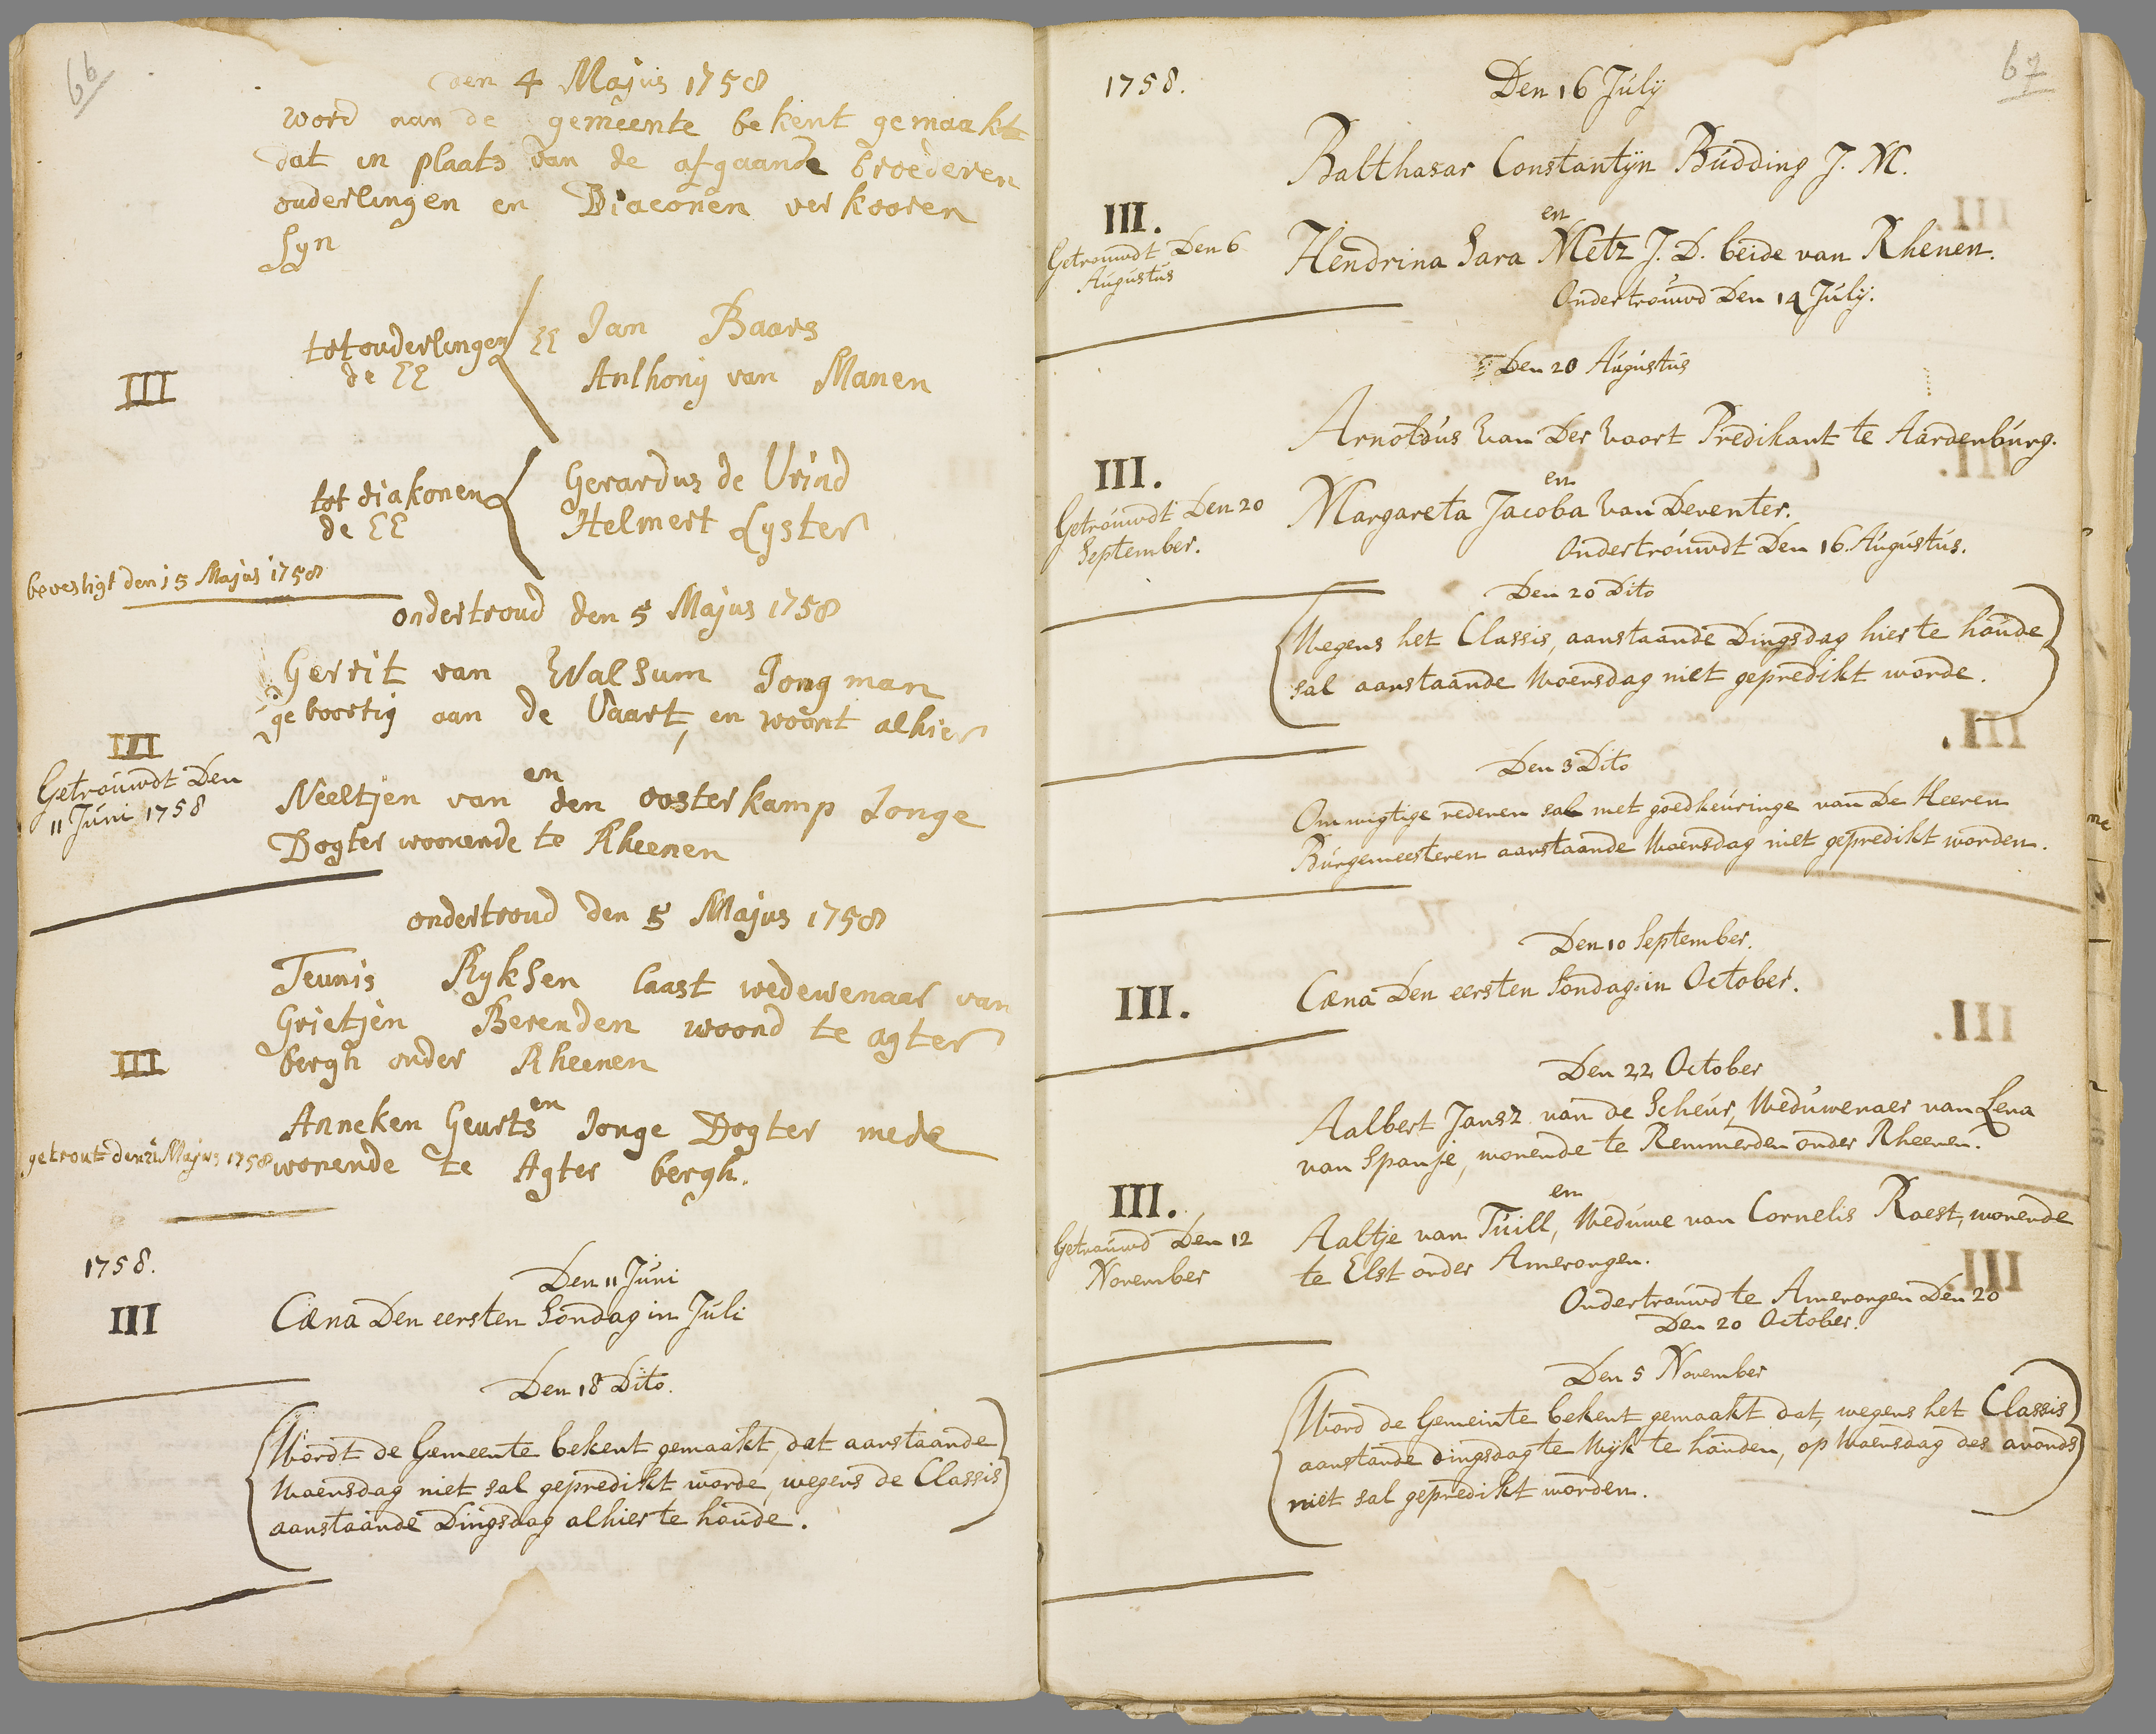 66
den 4 Majus 1758
word aan de gemeente bekent gemaakt
dat in plaats van de afgaande broederen
ouderlingen en Diaconen verkooren
syn
III
tot ouderlingen
de EE
EE Jan Baars
Anthony van Manen
tot diakonen
de EE
Gerardus de Vrind
Helmert Lyster
bevestigt den 15 Majus 1758
ondertroud den 5 Majus 1758
Gerrit van Walsum Jong man
geboortig aan de Vaart, en woont alhier
III
Getrouwdt Den
11 Juni 1758
en
Neeltjen van den oosterkamp Jonge
Dogter woonende te Rheenen
ondertroud den 5 Majus 1758
Teunis Ryksen laast wedewenaar van
Grietjen Berenden woond te agter
bergh onder Rheenen
III
en
Anneken Geurts Jonge Dogter mede
wonende te Agter bergh.
getrout den 21 Majus 1758
1758.
Den 11 Juni
III
Cæna Den eersten Sondag in Juli
Den 18 Dito.
Wordt de Gemeente bekent gemaakt, dat aanstaande
Woensdag niet sal gepredikt worde, wegens de Classis
aanstaande Dingsdag alhier te houde.
67
1758.
Den 16 July
Balthasar Constantijn Budding J. M.
III.
Getrouwdt Den 6
Augustus
en
Hendrina Sara Metz J. D. beide van Rhenen.
Ondertrouwd Den 14 July.
Den 20 Augustus
Arnoldus van Der Voort Predikant te Aardenburg.
III.
Getrouwdt Den 20
September.
en
Margareta Jacoba van Deventer.
Ondertrouwdt Den 16. Augustus.
Den 20 Dito
Wegens het Classis, aanstaande Dingsdag hier te houde
sal aanstaande Woensdag niet gepredikt worde.
Den 3 Dito
Om wigtige redenen sal met goedkeuringe van De Heeren
Burgemeesteren aanstaande Woensdag niet gepredikt worden.
Den 10 September.
III.
Cæna Den eersten Sondag in October.
Den 22 October
Aalbert Jansz van de Scheur, Weduwenaer van Lena
van Spanje, wonende te Remmerden onder Rheenen.
III.
Getrouwd Den 12
November
en
Aaltje van Tuill, Weduwe van Cornelis Roest, wonende
te Elst onder Amerongen.
Ondertrouwd te Amerongen Den 20
Den 20 October.
Den 5 November
Word de Gemeinte bekent gemaakt dat, wegens het Classis
aanstande dingsdag te Wijk te houden, op Woensdag des avonds
niet sal gepredikt worden.